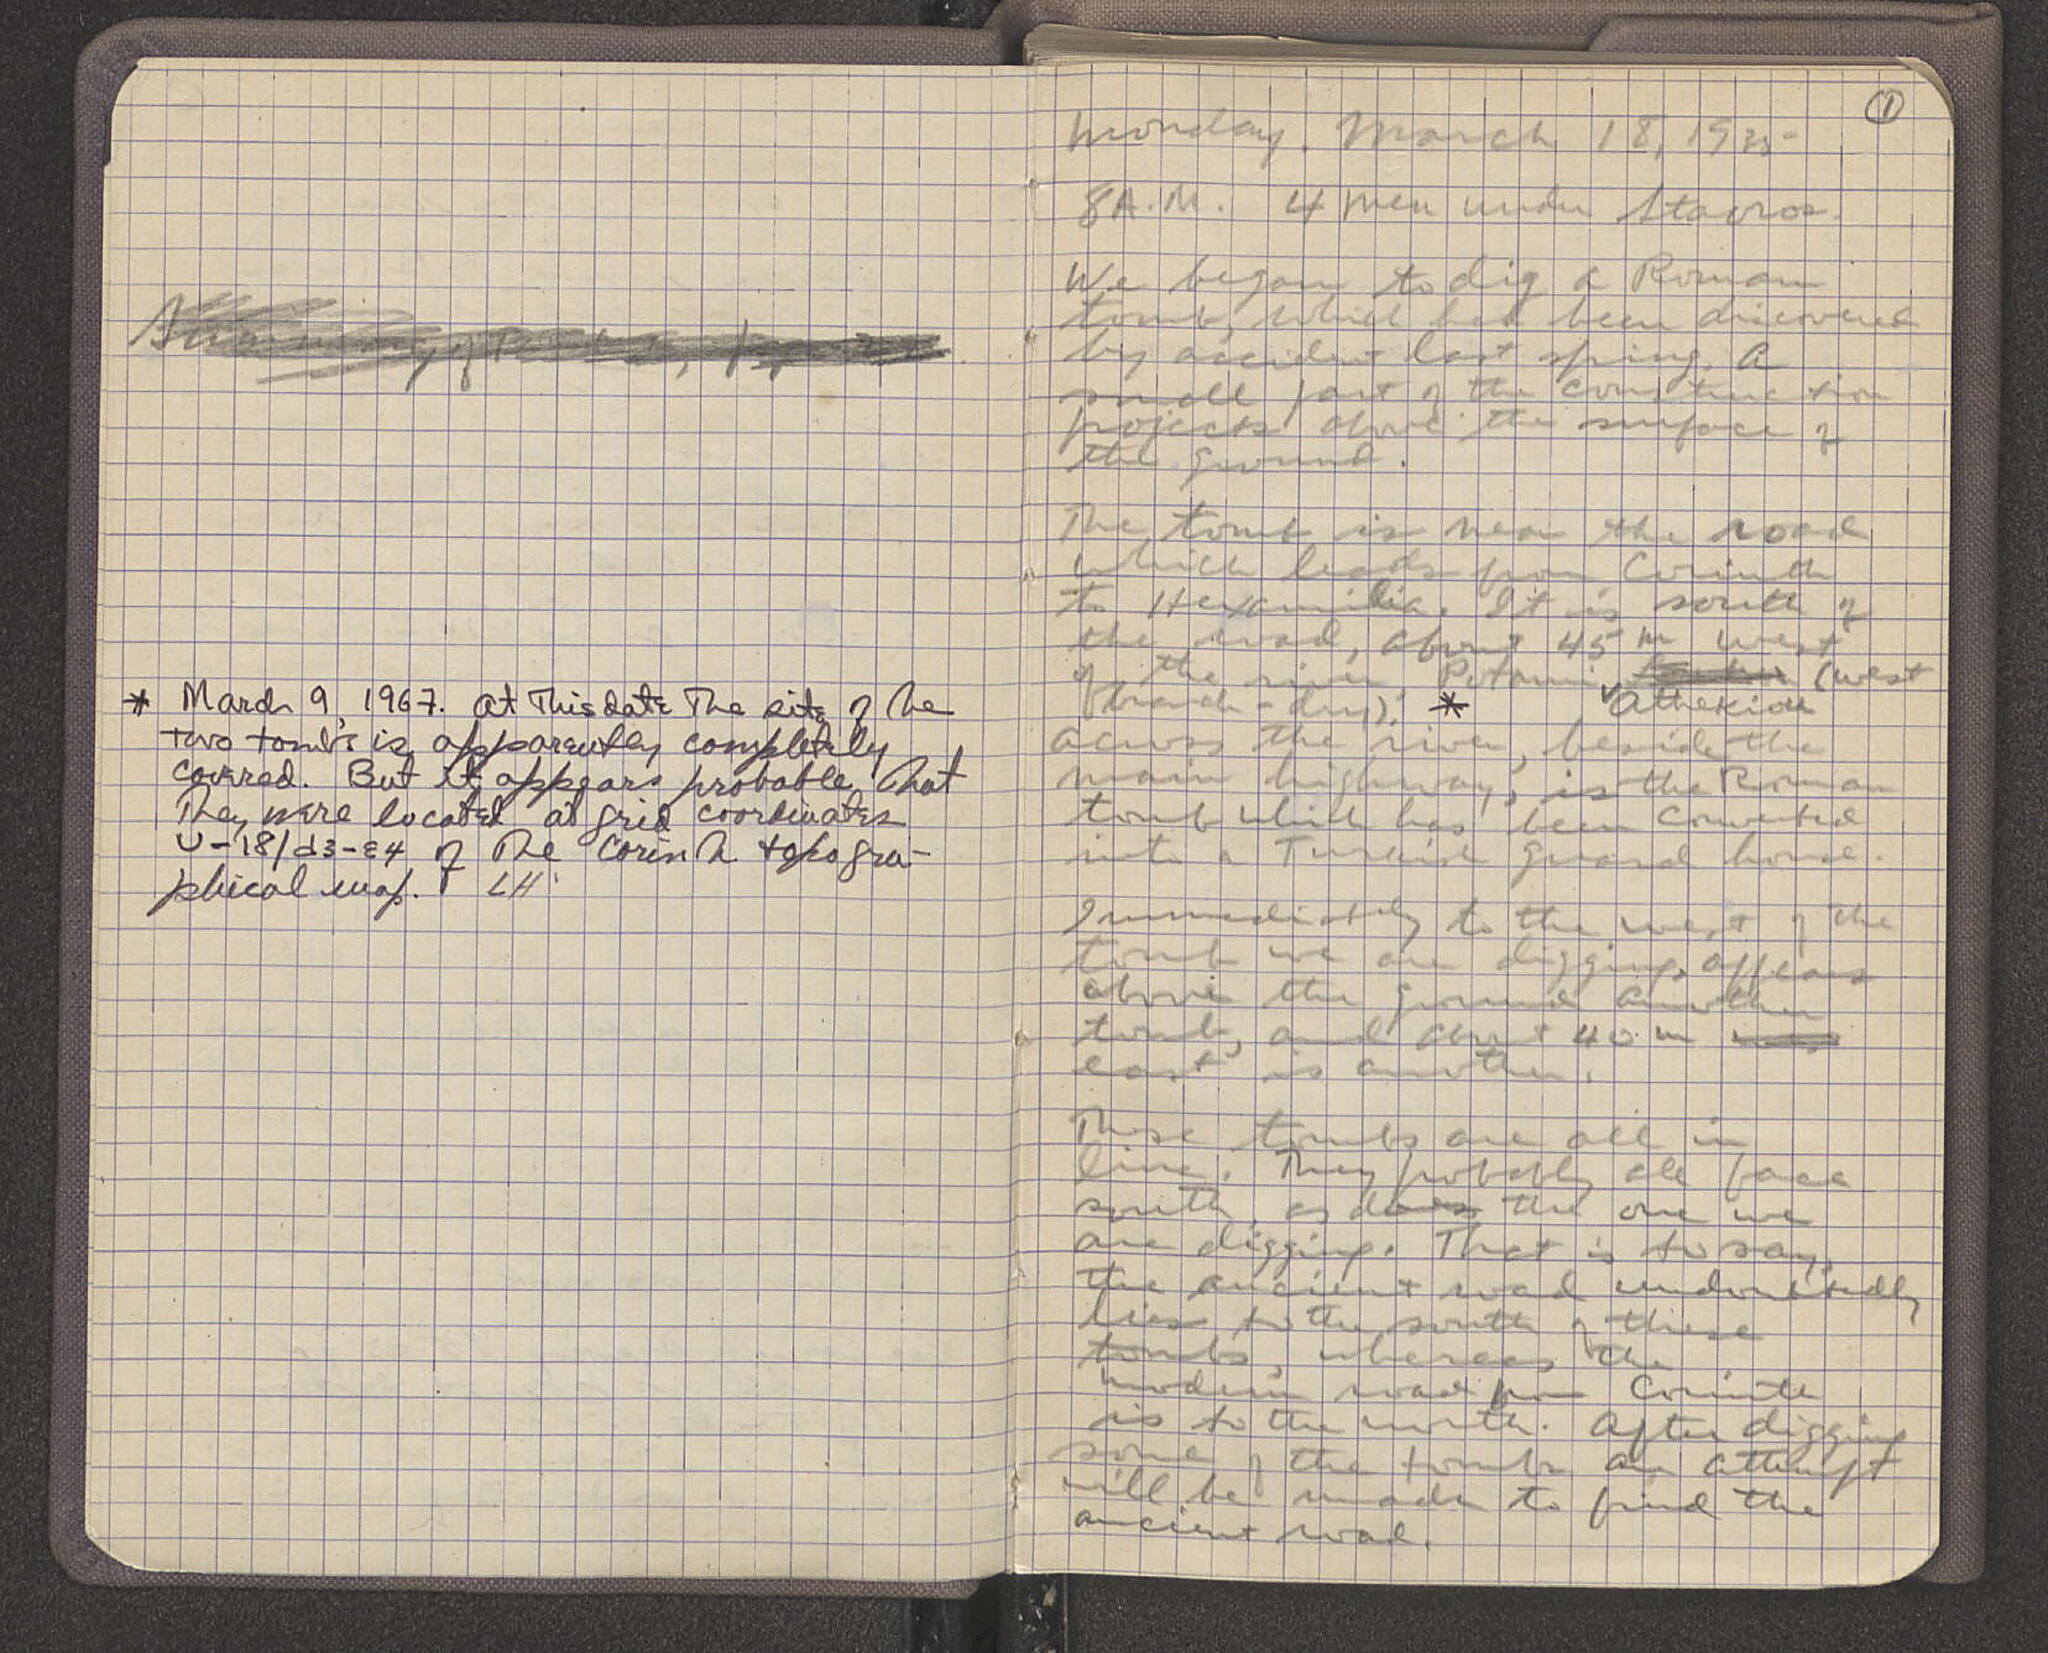 * March 9, 1967. At this date the site of the
two tombs is apparently completely
covered. But it appears probable that
they were located at grid coordinates
U-18/d3-E4 of the Corinth topogra-
phical map. LH
①
Monday. March 18, 1935
8 A.M. 4 men under Stavros.
We began to dig a Roman
tomb, which had been discovered
by accident last spring. A
small part of the construction
projects above the surface of
the ground.
The tomb is near the road
which leads from Corinth
to Hexamilia. It is south of
the road, about 45 m west
of the river Potami (west
branch - dry). * Athekion
Across the river, beside the
main highway, is the Roman
tomb which has been converted
into a Turkish guard house.
Immediately to the west of the
tomb we are digging, appears
above the ground another
tomb, and about 40 m
east is another.
These tombs are all in
line. They probably all face
south, as does the one we
are digging. That is to say,
the ancient road undoubtedly
lies to the south of these
tombs, whereas the
modern road from Corinth
is to the north. After digging
some of the tombs an attempt
will be made to find the
ancient road.